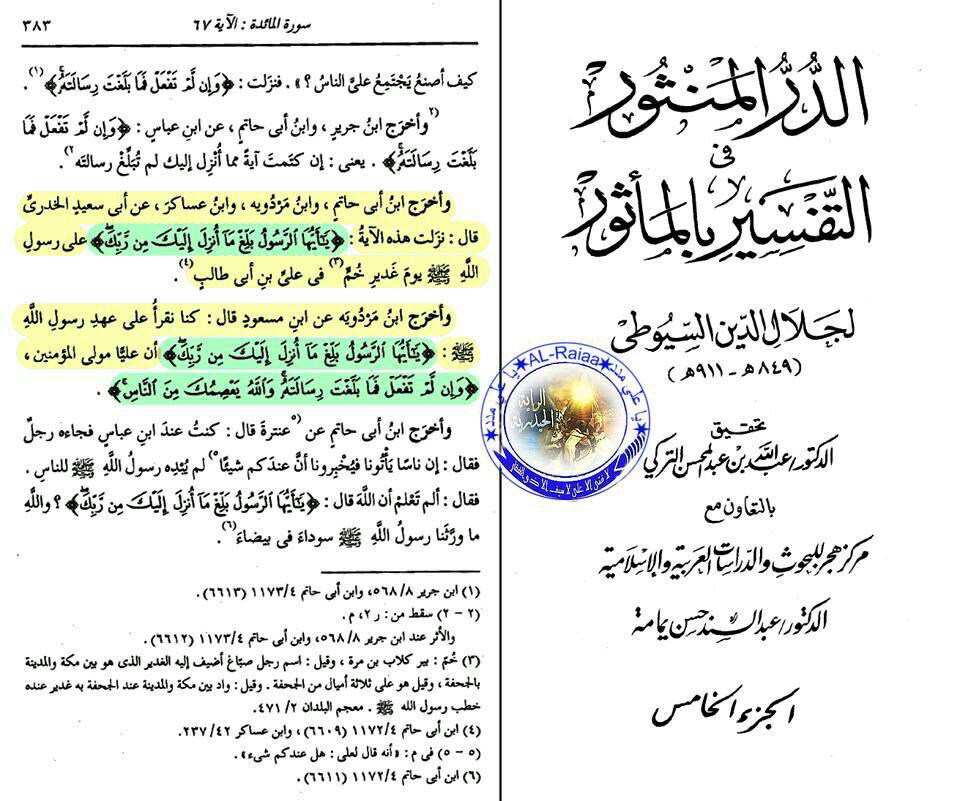 سورة المائدة : الآية ٦٧
٣٨٣
كيف أصنعُ يَجْتَمِعُ علىَّ الناسُ ؟» . فنزلت : ﴿وَإِن لَّمْ تَفْعَلْ فَمَا بَلَّغْتَ رِسَالَتَهُۥ﴾ (١) .
(٢) وأخرَج ابنُ جريرٍ ، وابنُ أبى حاتمٍ ، عن ابنِ عباسٍ : ﴿وَإِن لَّمْ تَفْعَلْ فَمَا
بَلَّغْتَ رِسَالَتَهُۥ﴾ . يعنى : إن كتَمتَ آيةً مما أُنْزِل إليك لم تُبَلِّغْ رسالتَه (٢) .
وأخرَج ابنُ أبى حاتمٍ ، وابنُ مَرْدُويه ، وابنُ عساكرَ ، عن أبى سعيدٍ الخدرىِّ
قال : نزَلت هذه الآيةُ : ﴿يَٰٓأَيُّهَا ٱلرَّسُولُ بَلِّغْ مَآ أُنزِلَ إِلَيْكَ مِن رَّبِّكَ﴾ على رسولِ
اللَّهِ ﷺ يومَ غديرِ خُمٍّ (٣) فى علىِّ بنِ أبى طالبٍ (٤) .
وأخرَج ابنُ مَرْدُويَه عن ابنِ مسعودٍ قال : كنا نقرأُ على عهدِ رسولِ اللَّهِ
ﷺ : ﴿يَٰٓأَيُّهَا ٱلرَّسُولُ بَلِّغْ مَآ أُنزِلَ إِلَيْكَ مِن رَّبِّكَ﴾ أن عليًّا مولى المؤمنين ،
﴿وَإِن لَّمْ تَفْعَلْ فَمَا بَلَّغْتَ رِسَالَتَهُۥ وَٱللَّهُ يَعْصِمُكَ مِنَ ٱلنَّاسِ﴾ .
وأخرَج ابنُ أبى حاتمٍ عن (٥) عنترةَ قال : كنتُ عندَ ابنِ عباسٍ فجاءه رجلٌ
فقال : إن ناسًا يَأْتُونا فيُخْبِرونا أنَّ عندَكم شيئًا (٥) لم يُبْدِه رسولُ اللَّهِ ﷺ للناسِ .
فقال : ألم تَعْلمْ أن اللَّهَ قال : ﴿يَٰٓأَيُّهَا ٱلرَّسُولُ بَلِّغْ مَآ أُنزِلَ إِلَيْكَ مِن رَّبِّكَ﴾ ؟ واللَّهِ
ما ورَّثَنا رسولُ اللَّهِ ﷺ سوداءَ فى بيضاءَ (٦) .
(١) ابن جرير ٨/ ٥٦٨، وابن أبى حاتم ٤/ ١١٧٣ (٦٦١٣) .
(٢ - ٢) سقط من : ر ٢، م .
والأثر عند ابن جرير ٨/ ٥٦٨، وابن أبى حاتم ٤/ ١١٧٣ (٦٦١٢) .
(٣) خُمّ : بير كلاب بن مرة ، وقيل : اسم رجل صبّاغ أضيف إليه الغدير الذى هو بين مكة والمدينة
بالجحفة ، وقيل هو على ثلاثة أميال من الجحفة . وقيل : واد بين مكة والمدينة عند الجحفة به غدير عنده
خطب رسول الله ﷺ . معجم البلدان ٢/ ٤٧١ .
(٤) ابن أبى حاتم ٤/ ١١٧٢ (٦٦٠٩) ، وابن عساكر ٤٢/ ٢٣٧.
(٥ - ٥) فى م : «أنه قال لعلى : هل عندكم شىء» .
(٦) ابن أبى حاتم ٤/ ١١٧٢ (٦٦١١) .
الدُّرُّ المَنْثُور
فى
التَّفْسِيرِ بِالمَأْثُور
لجلال الدين السيوطى
(٨٤٩هـ - ٩١١هـ)
تحقيق
الدكتور/عبد الله بن عبد المحسن التركي
بالتعاون مع
مركز هجر للبحوث والدراسات العربية والإسلامية
الدكتور/عبد السند حسن يمامة
الجزء الخامس
AL-Raiaa
يا علي مدد
يا علي مدد
الراية
الحيدرية